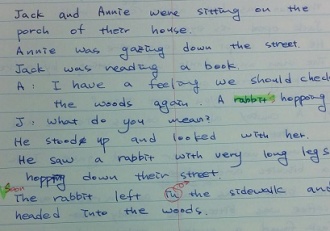 Jack and Annie were sitting on the
porch of their house.
Annie was gazing down the street.
Jack was reading a book.
A: I have a feeling we should check
the woods again. A rabbit's hopping
J: What do you mean?
He stood up and looked with her.
He saw a rabbit with very long legs
hopping down their street.
The rabbit left the sidewalk and
headed into the woods.